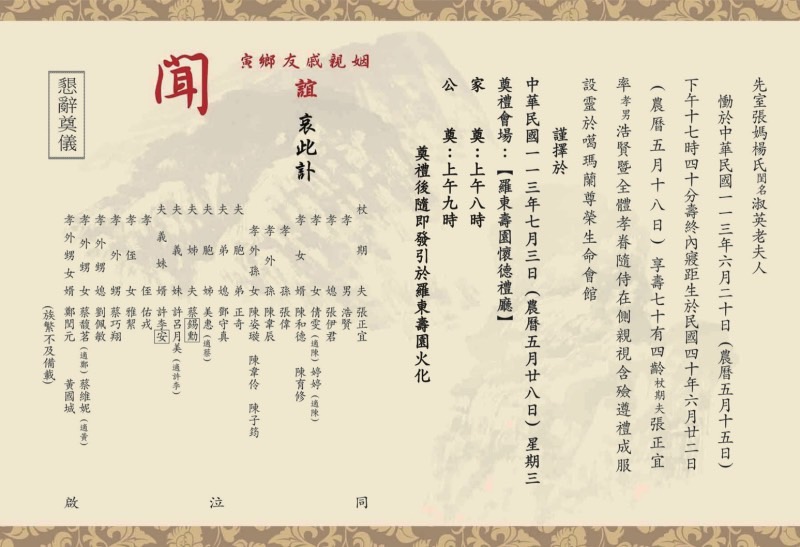 先室張媽楊氏閨名淑英老夫人
慟於中華民國一一三年六月二十日(農曆五月十五日)
下午十七時四十分壽終內寢距生於民國四十年六月廿二日
(農曆五月十八日)享壽七十有四齡杖期夫張正宜
率孝男浩賢暨全體孝眷隨侍在側親視含殮遵禮成服
設靈於噶瑪蘭尊榮生命會館
謹擇於
中華民國一一三年七月三日(農曆五月廿八日)星期三
奠禮會場:【羅東壽園懷德禮廳】
家 奠:上午八時
公 奠:上午九時
奠禮後隨即發引於羅東壽園火化
寅鄉友戚親姻
誼
哀此訃
聞
懇辭奠儀
杖期夫 張正宜
孝男 浩賢
孝媳 張伊君
孝女 倩雯(適陳) 婷婷(適陳)
孝女婿 陳和德 陳育修
孝孫 張偉
孝外孫 陳韋辰
孝外孫女 陳姿璇 陳韋伶 陳子筠
夫胞弟 正奇
夫弟媳 鄧守真
夫胞姊 美惠(適蔡)
夫姊夫 蔡錫勳
夫義妹 許呂月美(適許李)
夫義妹婿 許李安
孝姪 佑戎
孝姪女 雅絜
孝外甥 蔡巧翔
孝外甥媳 劉佩敏
孝外甥女 蔡馥茗(適鄭) 蔡維妮(適黃)
孝外甥女婿 鄭閔元 黃國城
(族繁不及備載)
同
泣
啟